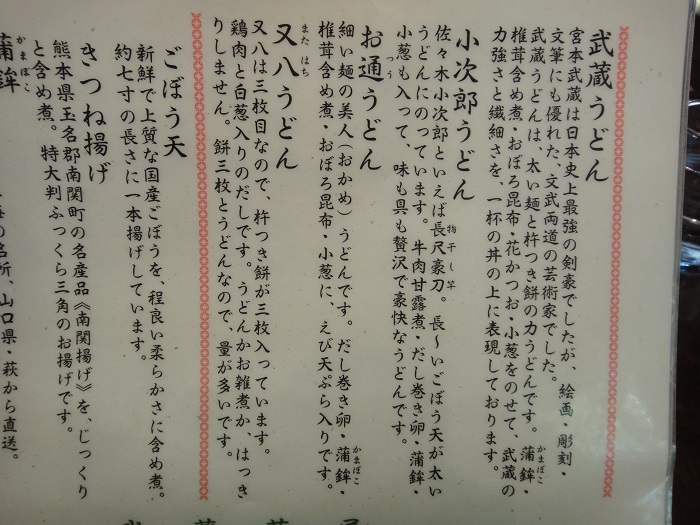 武蔵うどん
宮本武蔵は日本史上最強の剣豪でしたが、絵画・彫刻・
文筆にも優れた、文武両道の芸術家でした。
武蔵うどんは、太い麺と杵つき餅の力うどんです。蒲鉾・
かまぼこ
椎茸含め煮・おぼろ昆布・花かつお・小葱をのせて、武蔵の
力強さと繊細さを、一杯の丼の上に表現しております。
小次郎うどん
佐々木小次郎といえば長尺豪刀。長〜いごぼう天が太い
物干し竿
うどんにのっています。牛肉甘露煮・だし巻き卵・蒲鉾・
小葱も入って、味も具も贅沢で豪快なうどんです。
お通うどん
つう
細い麺の美人(おかめ)うどんです。だし巻き卵・蒲鉾・
かまぼこ
椎茸含め煮・おぼろ昆布・小葱に、えび天ぷら入りです。
又八うどん
またはち
又八は三枚目なので、杵つき餅が三枚入っています。
鶏肉と白葱入りのだしです。うどんかお雑煮か、はっき
りしません。餅三枚とうどんなので、量が多いです。
ごぼう天
新鮮で上質な国産ごぼうを、程良い柔らかさに含め煮。
約七寸の長さに一本揚げしています。
きつね揚げ
熊本県玉名郡南関町の名産品《南関揚げ》を、じっくり
と含め煮。特大判ふっくら三角のお揚げです。
蒲鉾
かまぼこ
の名所、山口県・萩から直送。